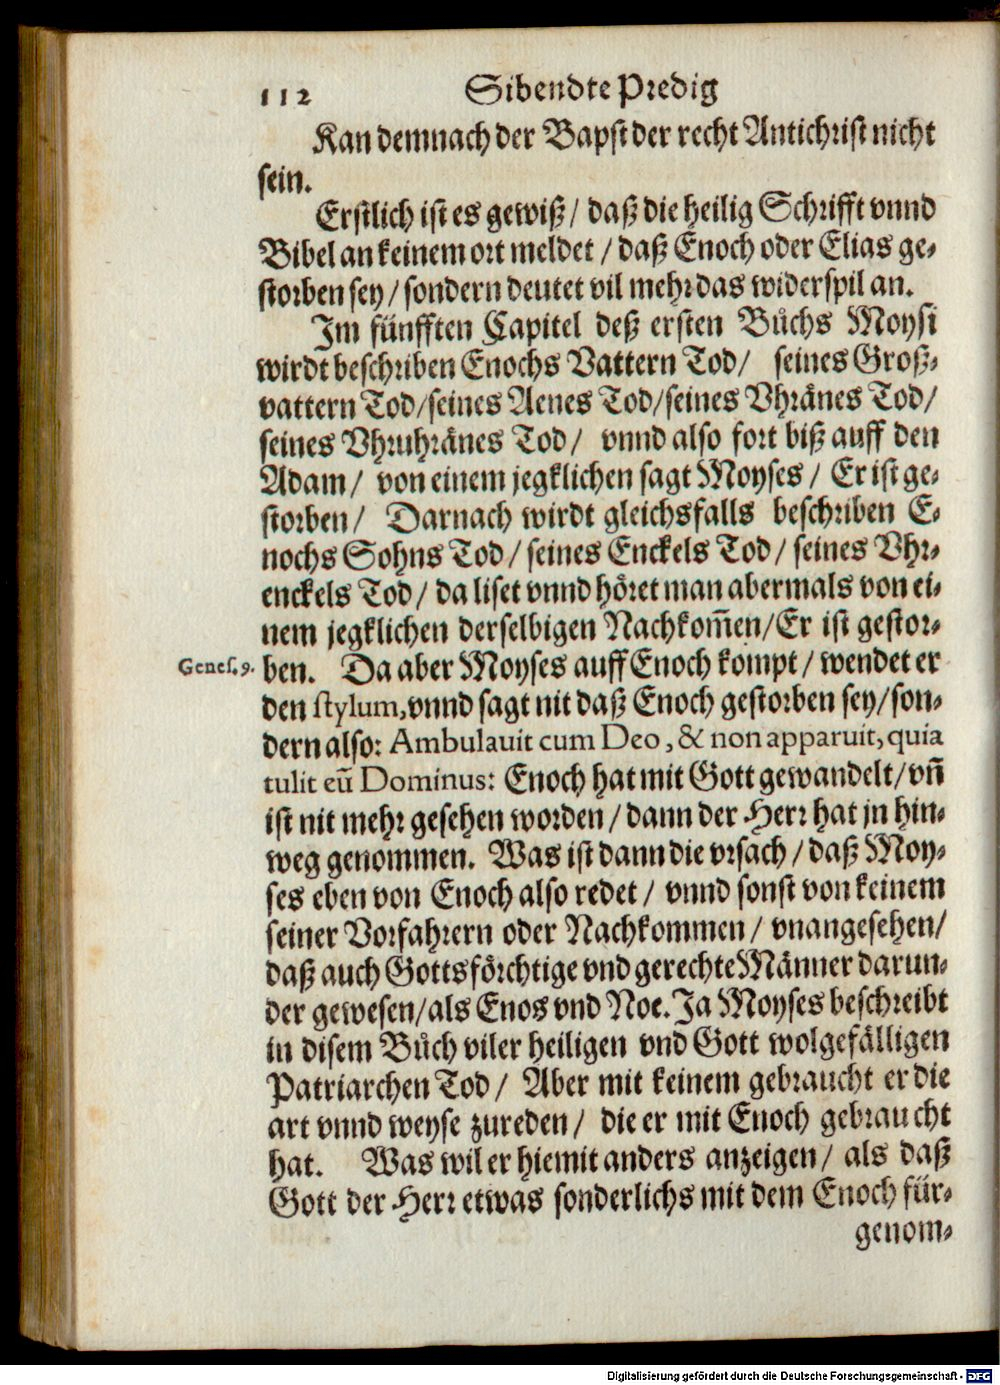 112 Sibendte Predig
Kan demnach der Bapst der recht Antichrist nicht
sein.
Erstlich ist es gewiß / daß die heilig Schrifft vnnd
Bibel an keinem ort meldet / daß Enoch oder Elias ge-
storben sey / sondern deutet vil mehr das widerspil an.
Im fünfften Capitel deß ersten Bůchs Moysi
wirdt beschriben Enochs Vattern Tod / seines Groß-
vattern Tod / seines Aenes Tod / seines Vhränes Tod /
seines Vhruhränes Tod / vnnd also fort biß auff den
Adam / von einem jegklichen sagt Moyses / Er ist ge-
storben / Darnach wirdt gleichsfalls beschriben E-
nochs Sohns Tod / seines Enckels Tod / seines Vhr-
enckels Tod / da liset vnnd höret man abermals von ei-
nem jegklichen derselbigen Nachkom̃en / Er ist gestor-
Genes. 9. ben. Da aber Moyses auff Enoch kompt / wendet er
den stylum, vnnd sagt nit daß Enoch gestorben sey / son-
dern also: Ambulavit cum Deo, & non apparuit, quia
tulit eũ Dominus: Enoch hat mit Gott gewandelt / vñ
ist nit mehr gesehen worden / dann der Herr hat jn hin-
weg genommen. Was ist dann die vrsach / daß Moy-
ses eben von Enoch also redet / vnnd sonst von keinem
seiner Vorfahrern oder Nachkommen / vnangesehen /
daß auch Gottsförchtige vnd gerechte Männer darun-
der gewesen / als Enos vnd Noe. Ja Moyses beschreibt
in disem Bůch viler heiligen vnd Gott wolgefälligen
Patriarchen Tod / Aber mit keinem gebraucht er die
art vnnd weyse zureden / die er mit Enoch gebraucht
hat. Was wil er hiemit anders anzeigen / als daß
Gott der Herr etwas sonderlichs mit dem Enoch für-
genom-
Digitalisierung gefördert durch die Deutsche Forschungsgemeinschaft - DFG